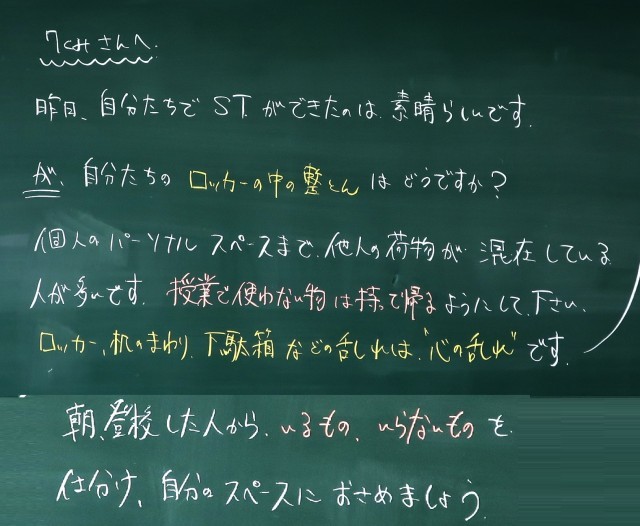 7cmさんへ.
昨日、自分たちで STができたのは、素晴らしいです.
が、自分たちの ロッカーの中の整とん は どうですか?
個人のパーソナルスペースまで、他人の荷物が 混在している
人が多いです. 授業で使わない物は持って帰るようにして下さい.
ロッカー、机のまわり、下駄箱などの乱れは、"心の乱れ"です.
朝、登校した人から、いるもの、いらないものを
仕分け、自分のスペースに おさめましょう.